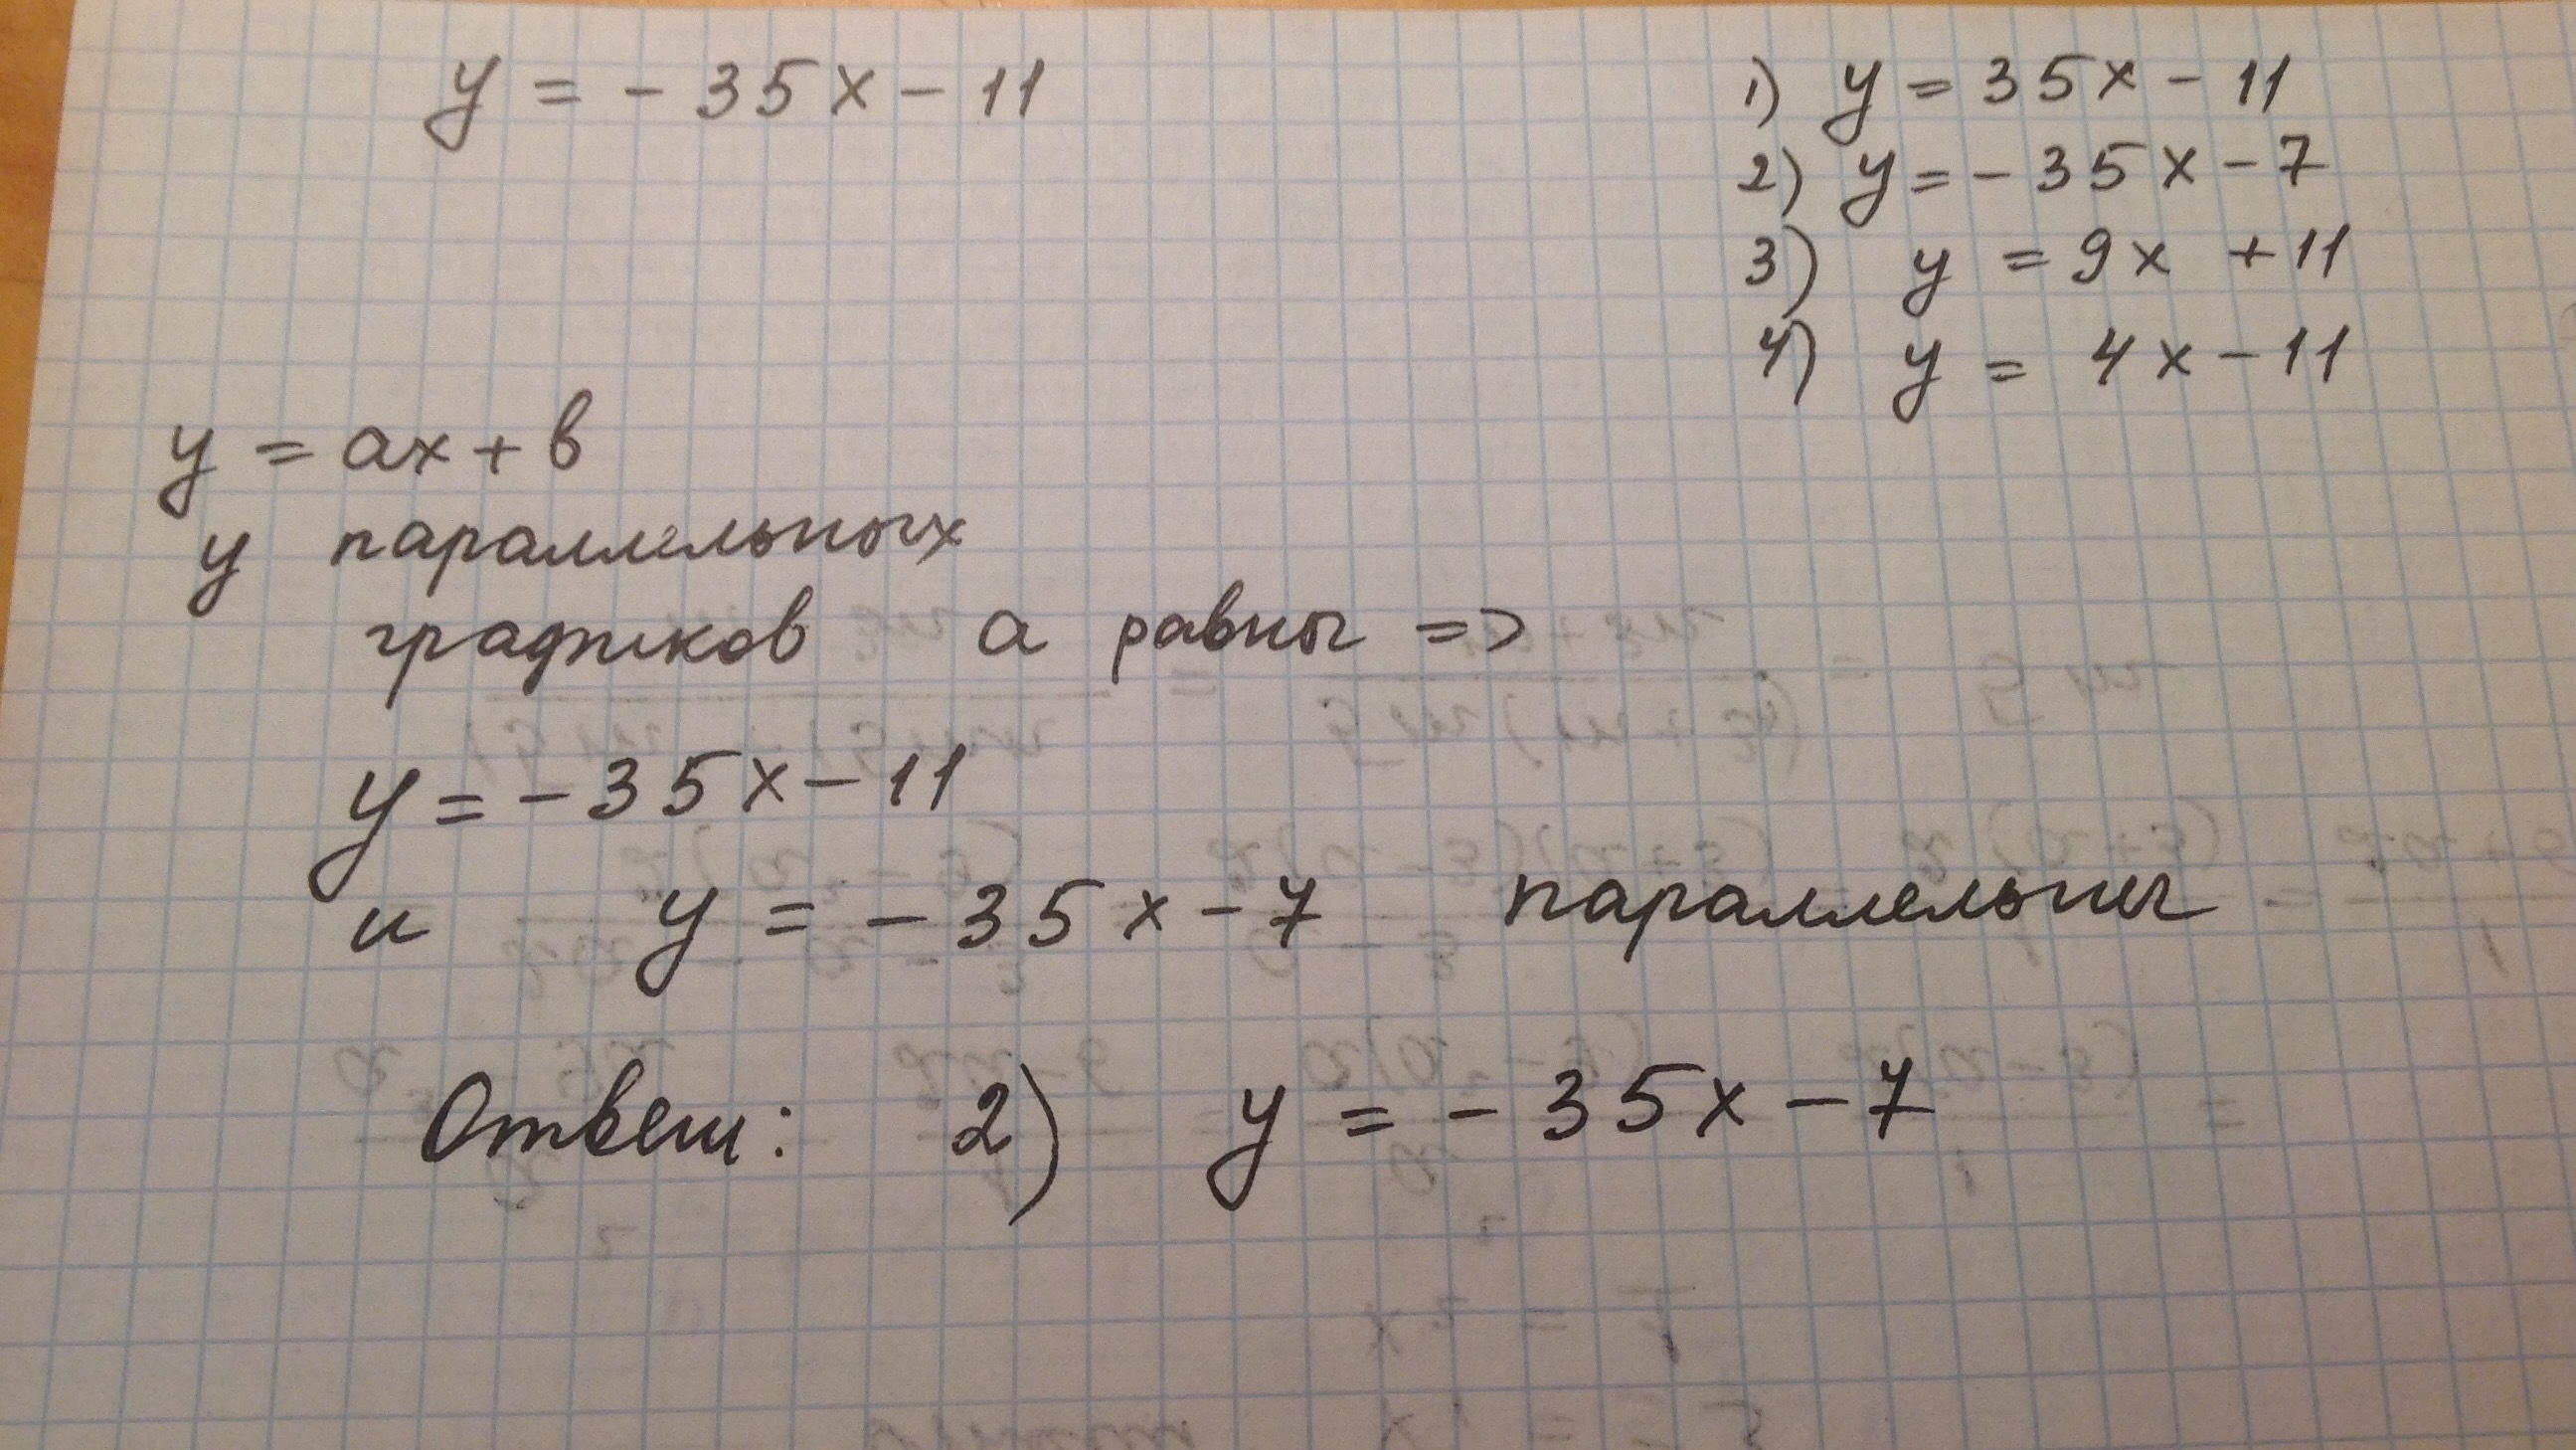 y = - 35x - 11
1) y = 35x - 11
2) y = - 35x - 7
3) y = 9x + 11
4) y = 4x - 11
y = ax + b
у параллельных
графиков а равны =>
y = - 35x - 11
и y = - 35x - 7 параллельны
Ответ: 2) y = - 35x - 7